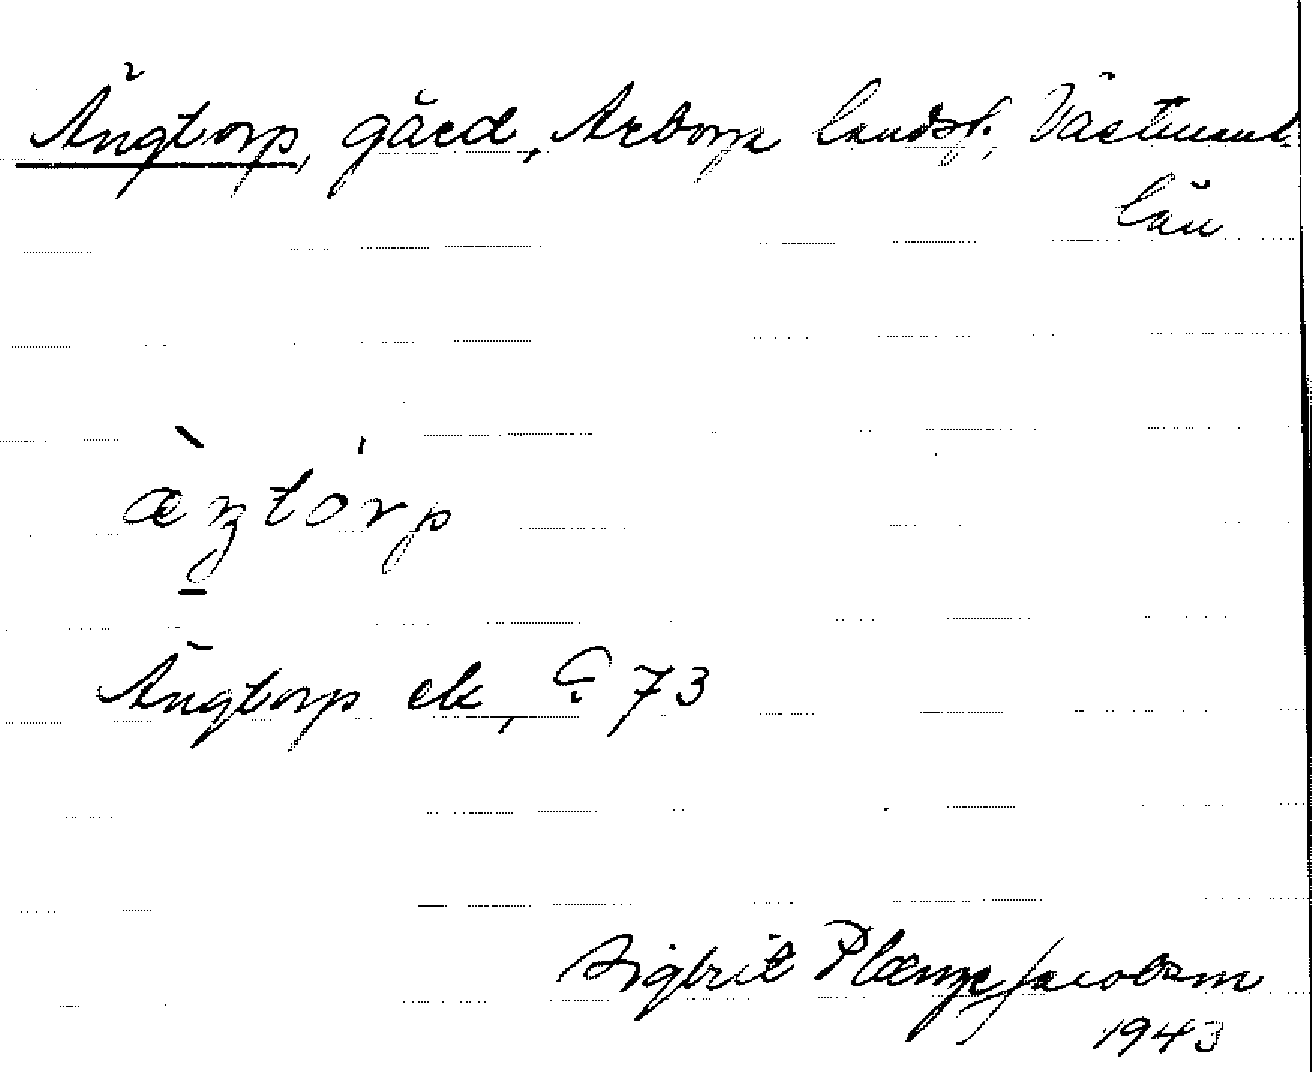 Ängtorp, gård, Arboga landsf., Västmanl.
län
æ̀ŋtórp
Ängtorp ek, G: 73
Sigbrit Plænge Jacobson
1943